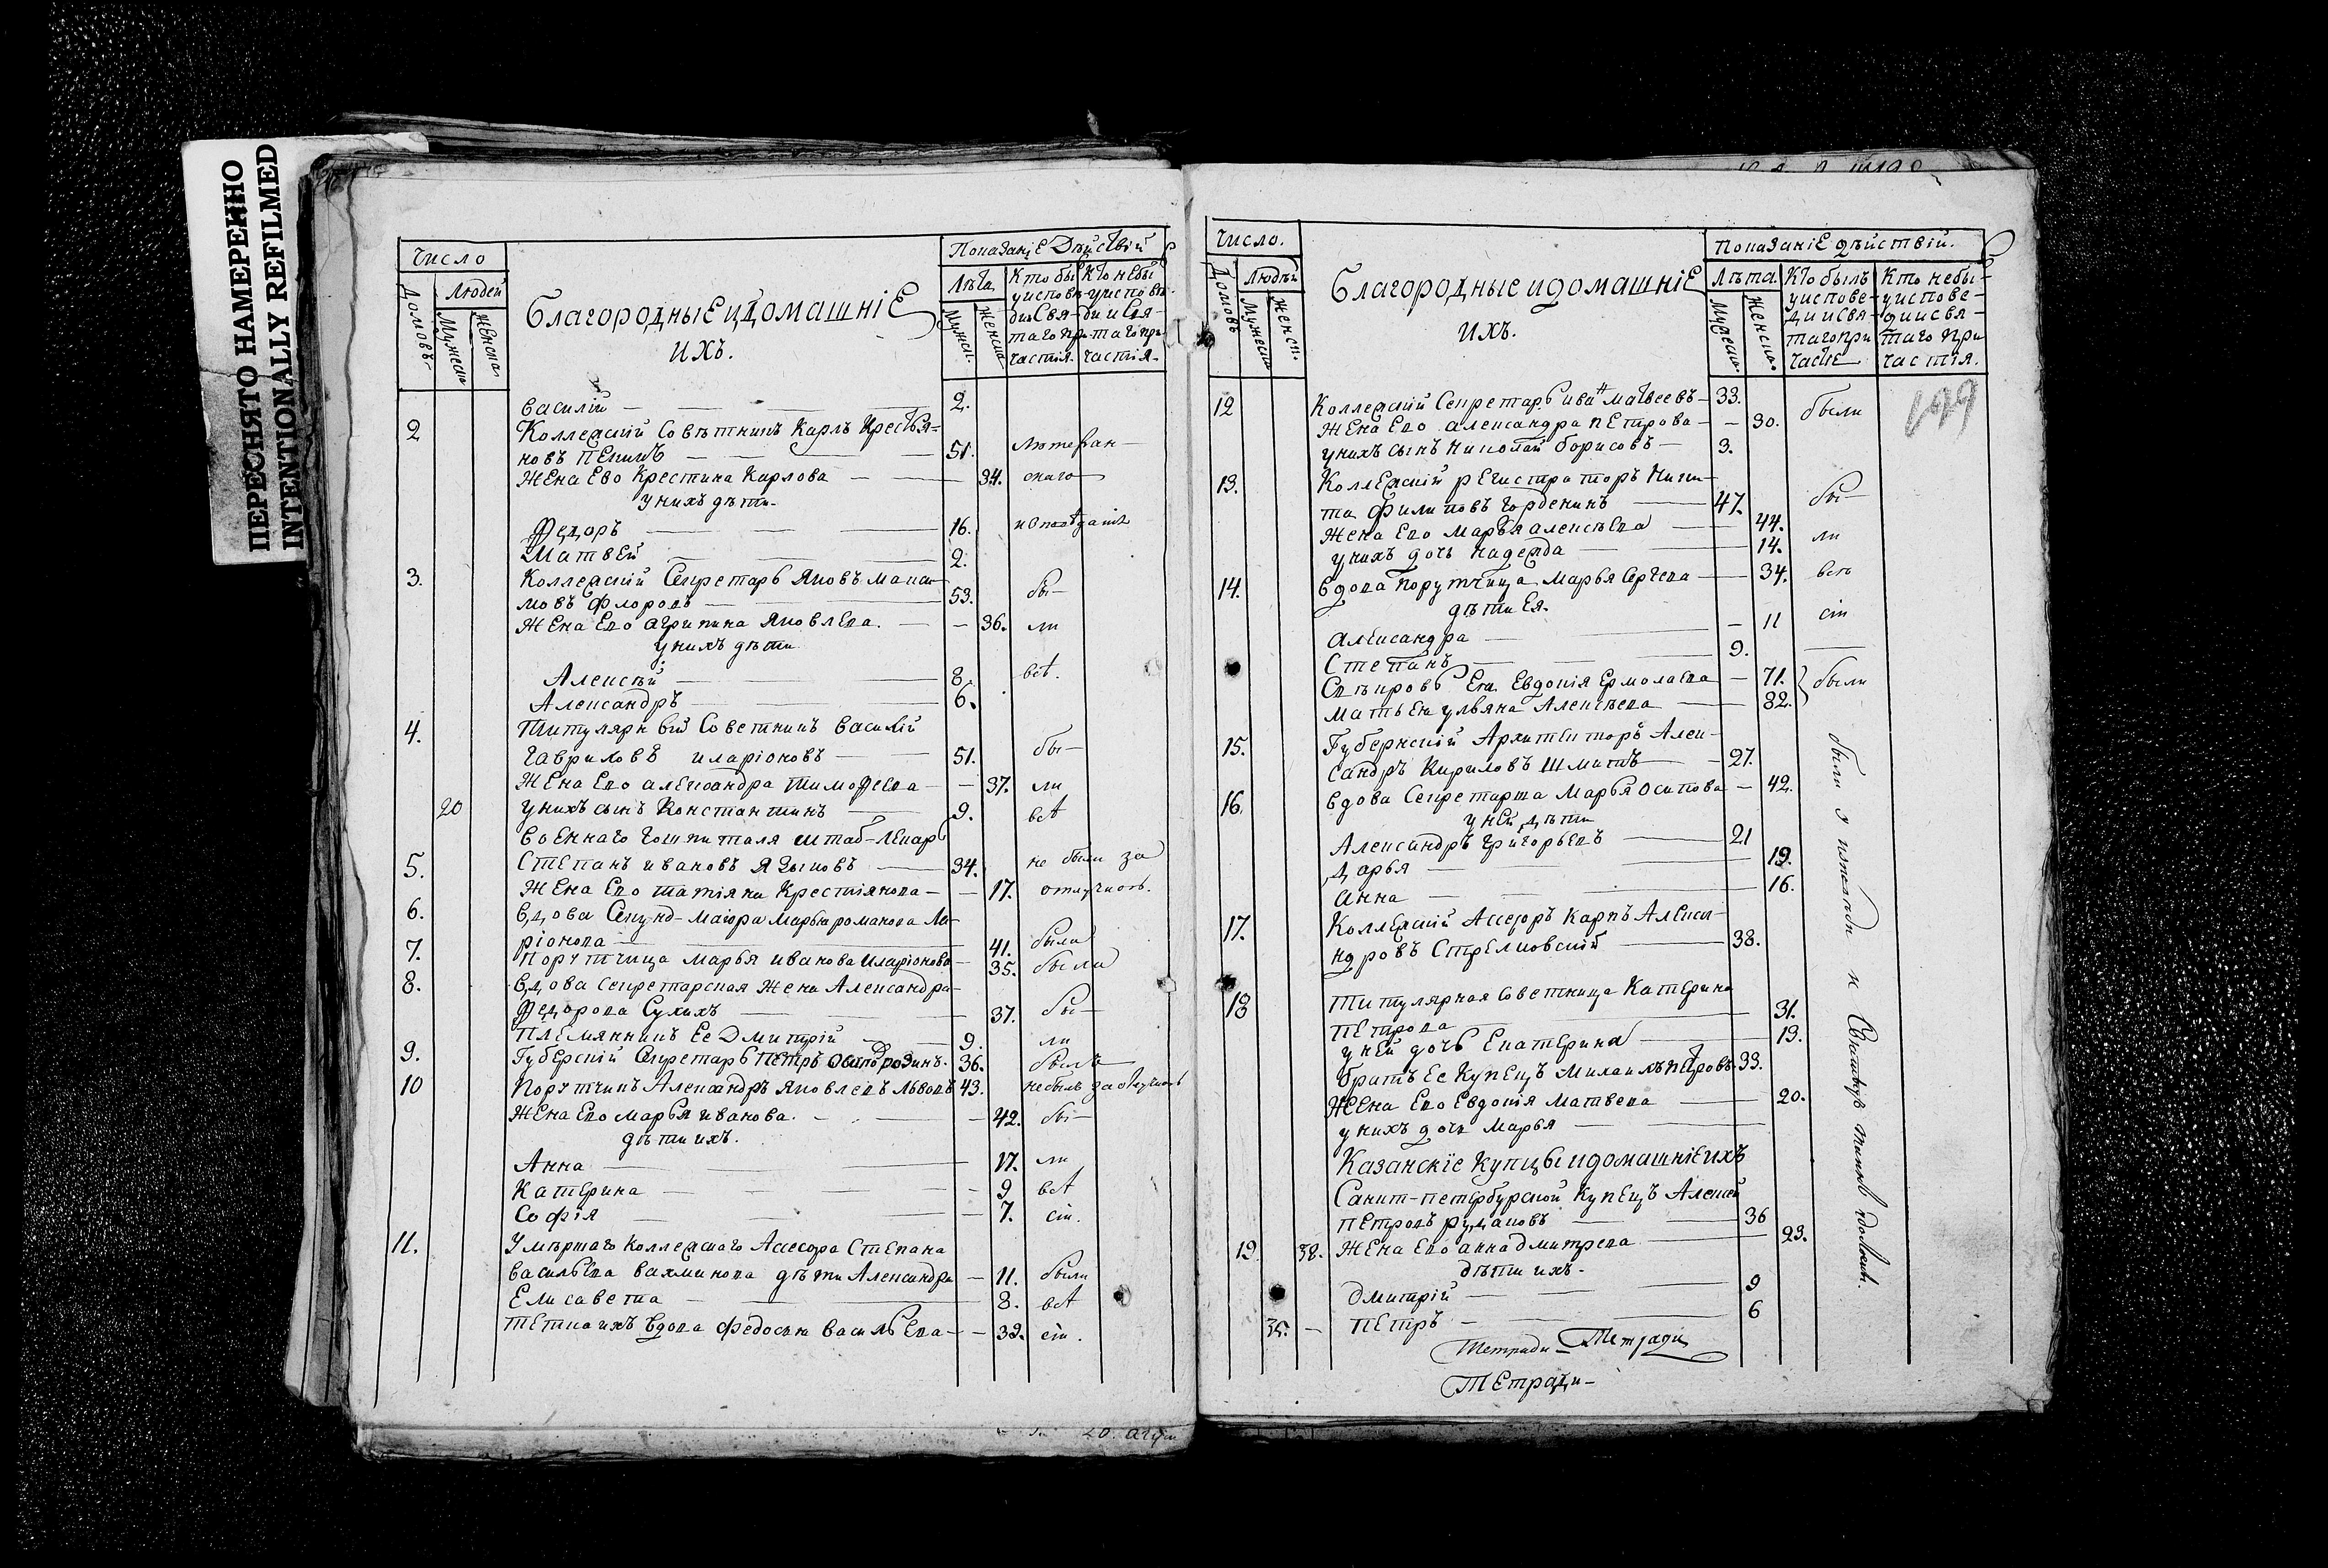 ПЕРЕСНЯТО НАМЕРЕННО
INTENTIONALLY REFILMED
Число
Домовъ
Людей
Мужеска
Женска
Благородные и домашнiе
ихъ.
Показанiе Дѣйствiй
Лѣта
Мужск.
Женска
Кто бы
у исповѣ-
ди и Свя-
таго при-
частiя.
Кто небы
у исповѣ-
ди и Свя-
таго при-
частiя.
василiй 2.
2 Коллежскiй Совѣтникъ Карлъ Крестья-
новъ 51. лютеран
Жена Ево Крестина Карлова 34. онаго
у нихъ дѣти
Федоръ 16.
Матвей 2.
3. Коллежскiй Секретарь Яковъ макси-
мовъ Фроловъ 53. бы-
Жена Ево агрипина Яковлева. 36. ли
у нихъ дѣти
Алексѣй 8. всѣ.
Александръ 6.
4. Титулярный Советникъ василiй
Гавриловъ иларiоновъ 51. бы-
Жена Ево александра тимофеева 37. ли
20 у нихъ сынъ Константинъ 9. всѣ
военнаго гошпиталя штаб-лекарь
5. Степанъ ивановъ Языковъ 34. не были за
Жена Ево татiяна Крестiянова 17. отлучкою.
6. вдова Секунд-маiора Марья романова Ла-
рiонова 41. была
7. Порутчица марья иванова Иларiонова 35. была
8. вдова секретарская жена Александра
Федорова Сухихъ 37. бы-
Племянникъ Ее Дмитрiй 9. ли
9. Губерскiй Секретарь Петръ 36. былъ
10 Порутчикъ Александръ Яковлевъ Львовъ 43. небылъ за отлучкою
Жена Ево марья иванова. 42. бы-
дѣти ихъ.
Анна 17. ли
Катерина 9 всѣ
Софiя 7. сiи.
11. Умѣршаго Коллежскаго Ассесора Степана
васильева вахмикова дѣти Александра 11. были
Елисавета 8. всѣ
тетка ихъ вдова Федосья васильева 39. сiи.
20.
Число.
Домовъ
Людѣй
Мужеска
Женск.
Благородные и домашнiе
ихъ.
Показанiе дѣйствiй.
Лѣта
Мужеска.
Женска.
Кто былъ
у испове-
ди и свя-
таго при
частiе
Кто небы-
у испове-
ди и свя-
таго при
частiя.
199
12 Коллежскiй Секретарь иван матвеевъ 33. были
Жена Ево александра петрова 30.
у нихъ сынъ николай борисовъ 3.
13. Коллежскiй регистраторъ Ники-
та Филиповъ Горденинъ 47. бы-
Жена Ево марья алексѣева 44. ли
у нихъ дочь надежда 14.
14. вдова порутчица марья Сергева 34. всѣ
дѣти Ея. сiи
Александра 11
Степанъ 9.
Свѣкровь Ея Евдокiя Ермолаева 71. были
мать Ея ульяна Алексѣева 82.
15. Губернскiй Архитекторъ Алек-
сандръ Кириловъ Шмитъ 27.
16. вдова Секретарша Марья осипова 42.
у ней дѣти
Александръ григорьевъ 21
дарья 19.
анна 16.
17. Коллежскiй Ассесоръ Карпъ Алекса-
ндровъ Стрелковскiй 38.
18 Титулярная Советница Катерина
петрова 31.
у ней дочь Екатерина 13.
братъ Ее Купецъ михаилъ петровъ 33.
Жена Ево Евдокiя матвева 20.
у нихъ дочь марья
Казанскiе Купцы и домашнiе ихъ
Санкт-петербурской Купецъ Алексей
петровъ рудаковъ 36
19. 38. Жена Ево анна дмитрева 23.
дѣти ихъ.
дмитрiй 9
35. петръ 6
Тетради Тетради
Тетради